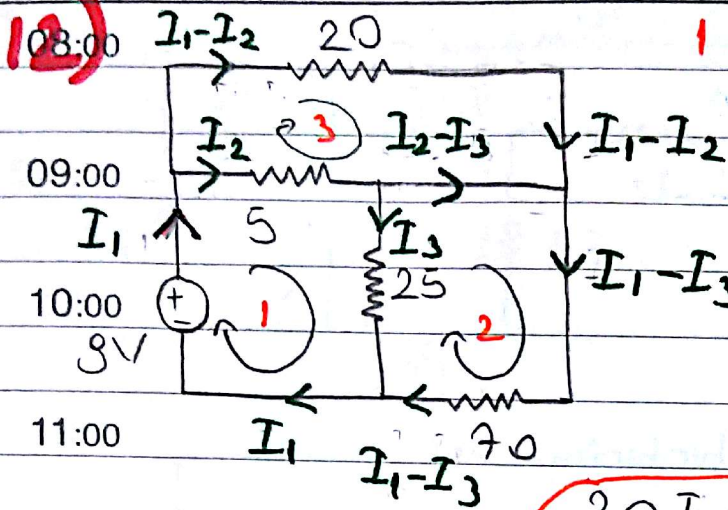 12)
08:00 I₁-I₂ 20 1
3
I₂ I₂-I₃ I₁-I₂
09:00
I₁ 5 I₃
25 I₁-I₃
10:00 + - 1 2
9V
11:00 I₁ 70
I₁-I₃